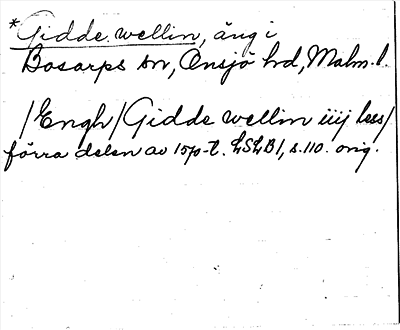 *Gidde wellin, äng i
Bosarps sn, Onsjö hd, Malm. l.
/Engh/ Gidde wellin iiij lass/
förra delen av 1570-t. LSLB1, s. 110. orig.